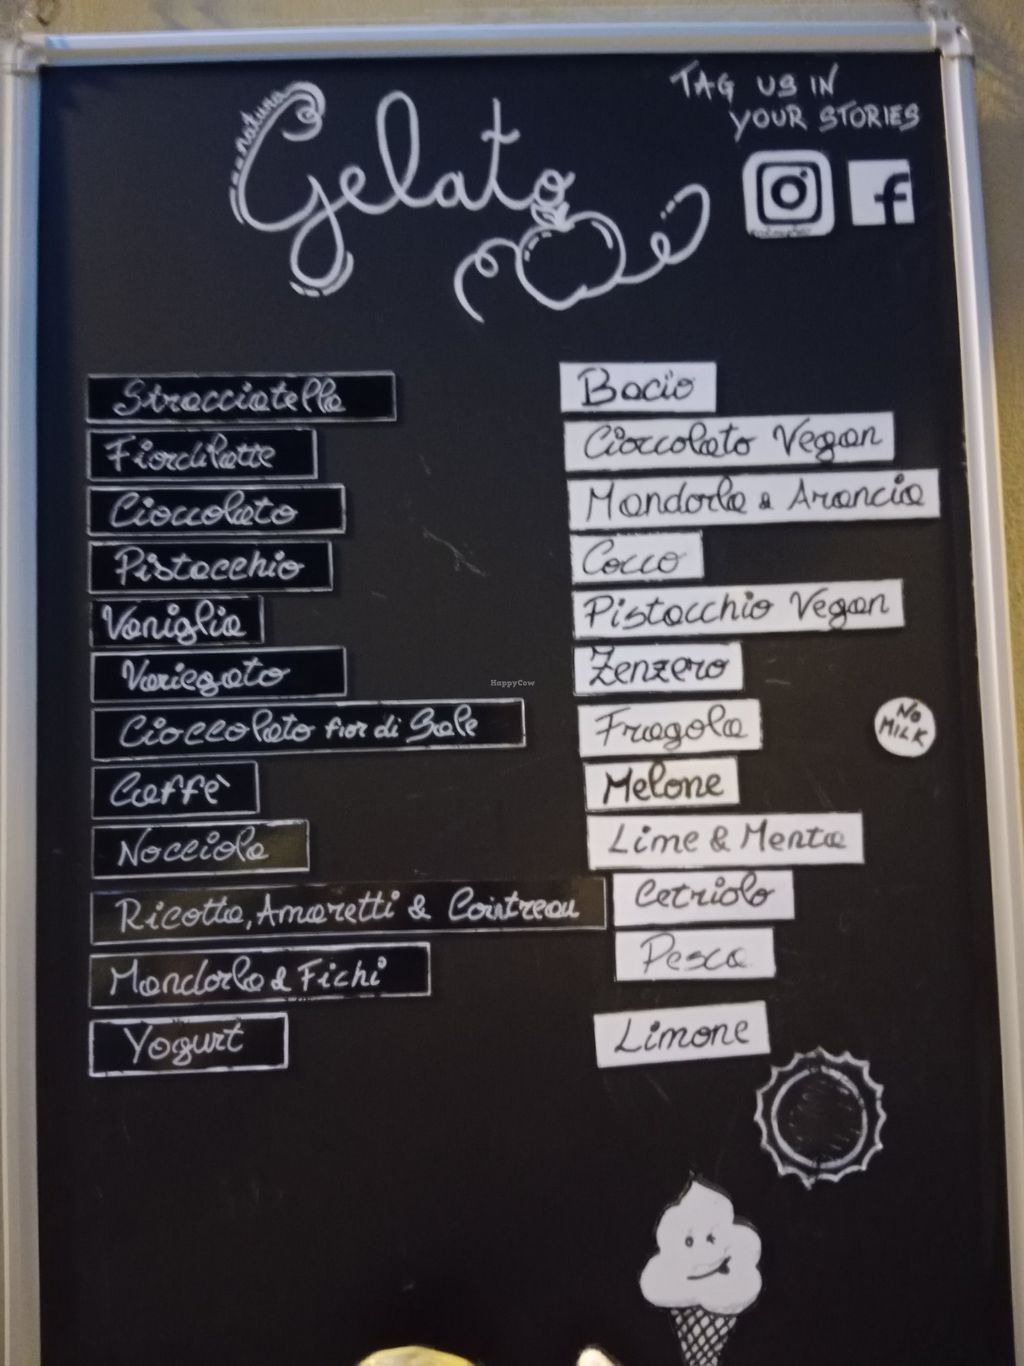 natura
Gelato
TAG US IN
YOUR STORIES
Stracciatella
Fiordilatte
Cioccolato
Pistacchio
Vaniglia
Variegato
Cioccolato fior di Sale
Caffè
Nocciola
Ricotta, Amaretti & Cointreau
Mandorla & Fichi
Yogurt
Bacio
Cioccolato Vegan
Mandorla & Arancia
Cocco
Pistacchio Vegan
Zenzero
Fragola
Melone
Lime & Menta
Cetriolo
Pesca
Limone
NO
MILK
HappyCow